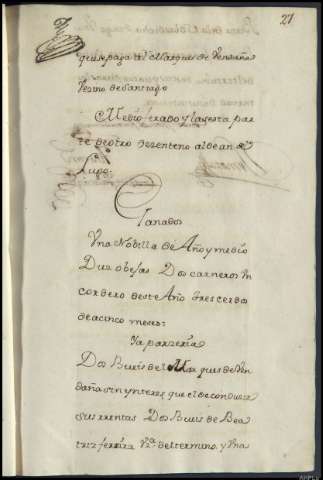 27
que se paga al Marques de Vendaña
Vezino de Santiago
Medio ferado y la sesta par
te de otro de zenteno al dean de
Lugo:
Ganados
Vna Nobilla de Año y medio
Dos obejas Dos carneros Vn
cordero deste Año tres cerdos
de a cinco meses:
Ya parzeria
Dos Bueis del Marques de Ven
daña sin ynteres que el de conducir
sus rrentas Dos Bueis de Bea
triz ferreira Vzª del termino y Vna